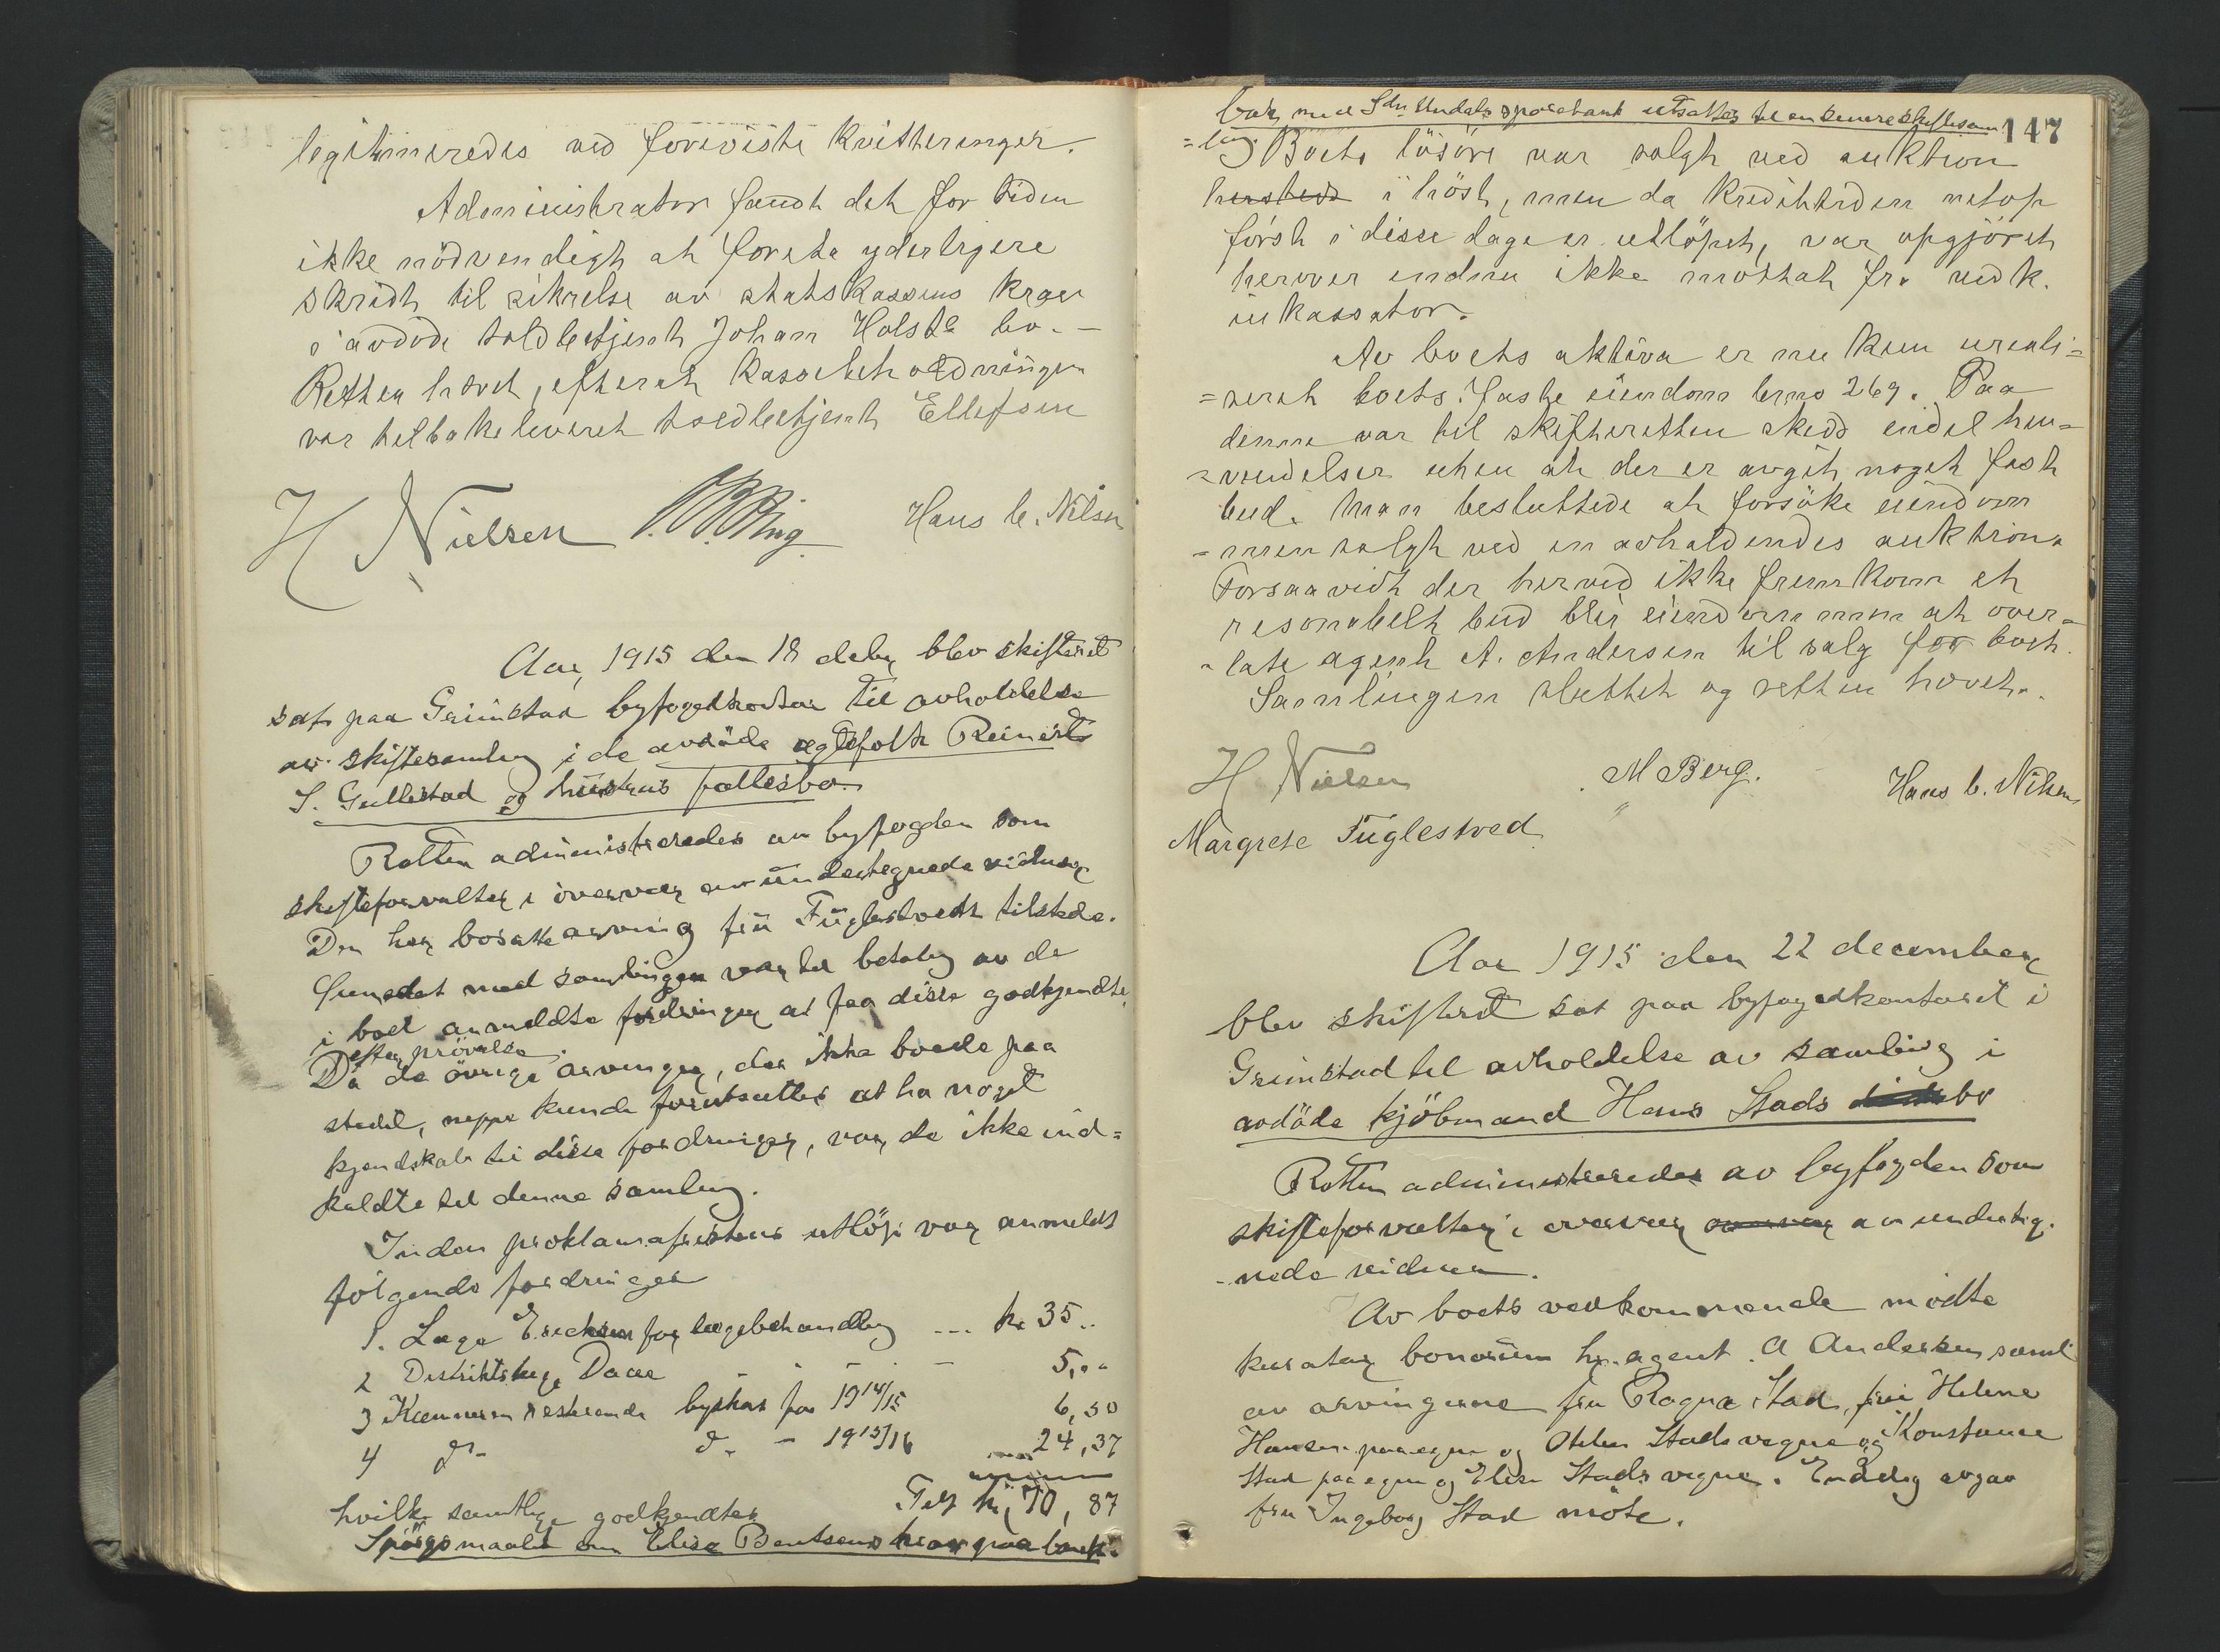 legitimeredes ved foreviste kvitteringer.
Administrator fandt det for tiden
ikke nödvendigt at foreta yderligere
skridt til sikrelse av statskassens krav
i avdöde toldbetjent Johan Holste bo. —
Retten hævet, efterat kassebeholdningen
var tilbakeleveret toldbetjent Ellefsen
H Nielsen Hans C. Nilsen
Aar 1915 den 18 decbr blev skifteret
sat paa Grimstad byfogedkontor til avholdelse
av skiftesamling i de avdöde egtefolk Reinert
S. Gullestad og hustrus fællesbo.
Retten administreredes av byfogden som
skifteforvalter i overvær av undertegnede vidner
Den her bosatte arving fru Fuglestvedt tilstede.
Hensigten med samlingen var til betaling av de
i boet anmeldte fordringer at faa disse godkjendte
efter prövelse.
Da de övrige arvinger, der ikke boede paa
stedet, neppe kunde forutsættes at ha noget
kjendskab til disse fordringer, var de ikke ind=
kaldte til denne samling.
Inden proklamafristens utlöp var anmeldt
fölgende fordringer
1. Læge Ericksen for lægebehandling ... kr 35..
2 Distriktslæge Daae — — 5,..
3 Kæmneren resterende byskat for 1914/15 6,50
4 do- do - 1915/16 24,37
Tils kr. 70,87
hvilke samtlige godkjendtes
Spörgsmaalet om Elise Bentsens krav paa bank=
147
bok med Sdr Undals sparebank utsattes til en senere skiftesam
=ling. Boets lösöre var solgt ved auktion
hersteds i höst, men da kredittiden netop
först i disse dage er utlöpet, var opgjöret
herover endnu ikke mottat fra vedk.
inkassator.
Av boets aktiva er nu kun ureali=
=seret boets faste eiendom brno 269. Paa
denne var til skifteretten skedd endel hen=
=vendelser uten at der er avgit noget fast
bud. Man besluttede at forsöke eiendom
=men solgt ved en avholdendes auktion.
Forsaavidt der herved ikke fremkom et
resonabelt bud blir eiendommen at over=
=late agent A. Andersen til salg for boet.
Samlingen sluttet og retten hævet.
H Nielsen M Berg. Hans C. Nilsen
Margrete Fuglestved
Aar 1915 den 22 december
blev skifteret sat paa byfogedkontoret i
Grimstad til avholdelse av samling i
avdöde kjöbmand Hans Stads bo
Retten administreredes av byfogden som
skifteforvalter i overvær overvær av underteg-
-nede vidner.
Av boets vedkommende mödte
kurator bonorum hr. agent A Andersen samt
av arvingerne fru Ragna Stad, fru Helene
Hansen paa egne og Othlin Stads vegne og Konstance
Stad paa egne og Elise Stads vegne. Endelig avgav
fru Ingeborg Stad möte.